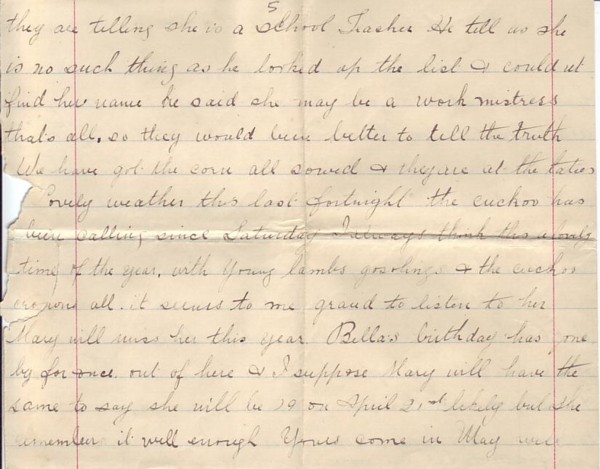 5
they are telling she is a School Teacher He tell us she
is no such thing as he looked up the list & could not
find her name he said she may be a work mistress
that's all, so they would been better to tell the truth
We have got the corn all sowed & they are at the taties
Lovely weather this last fortnight the cuckoo has
been calling since Saturday I always think this a lovely
time of the year, with young lambs goslings & the cuckoo
all. it seems to me grand to listen to her
Mary will miss her this year Bella's birthday has gone
by for once out of here & I suppose Mary will have the
same to say she will be 29 on April 21st likely but she
remembers it well enough Yours come in May